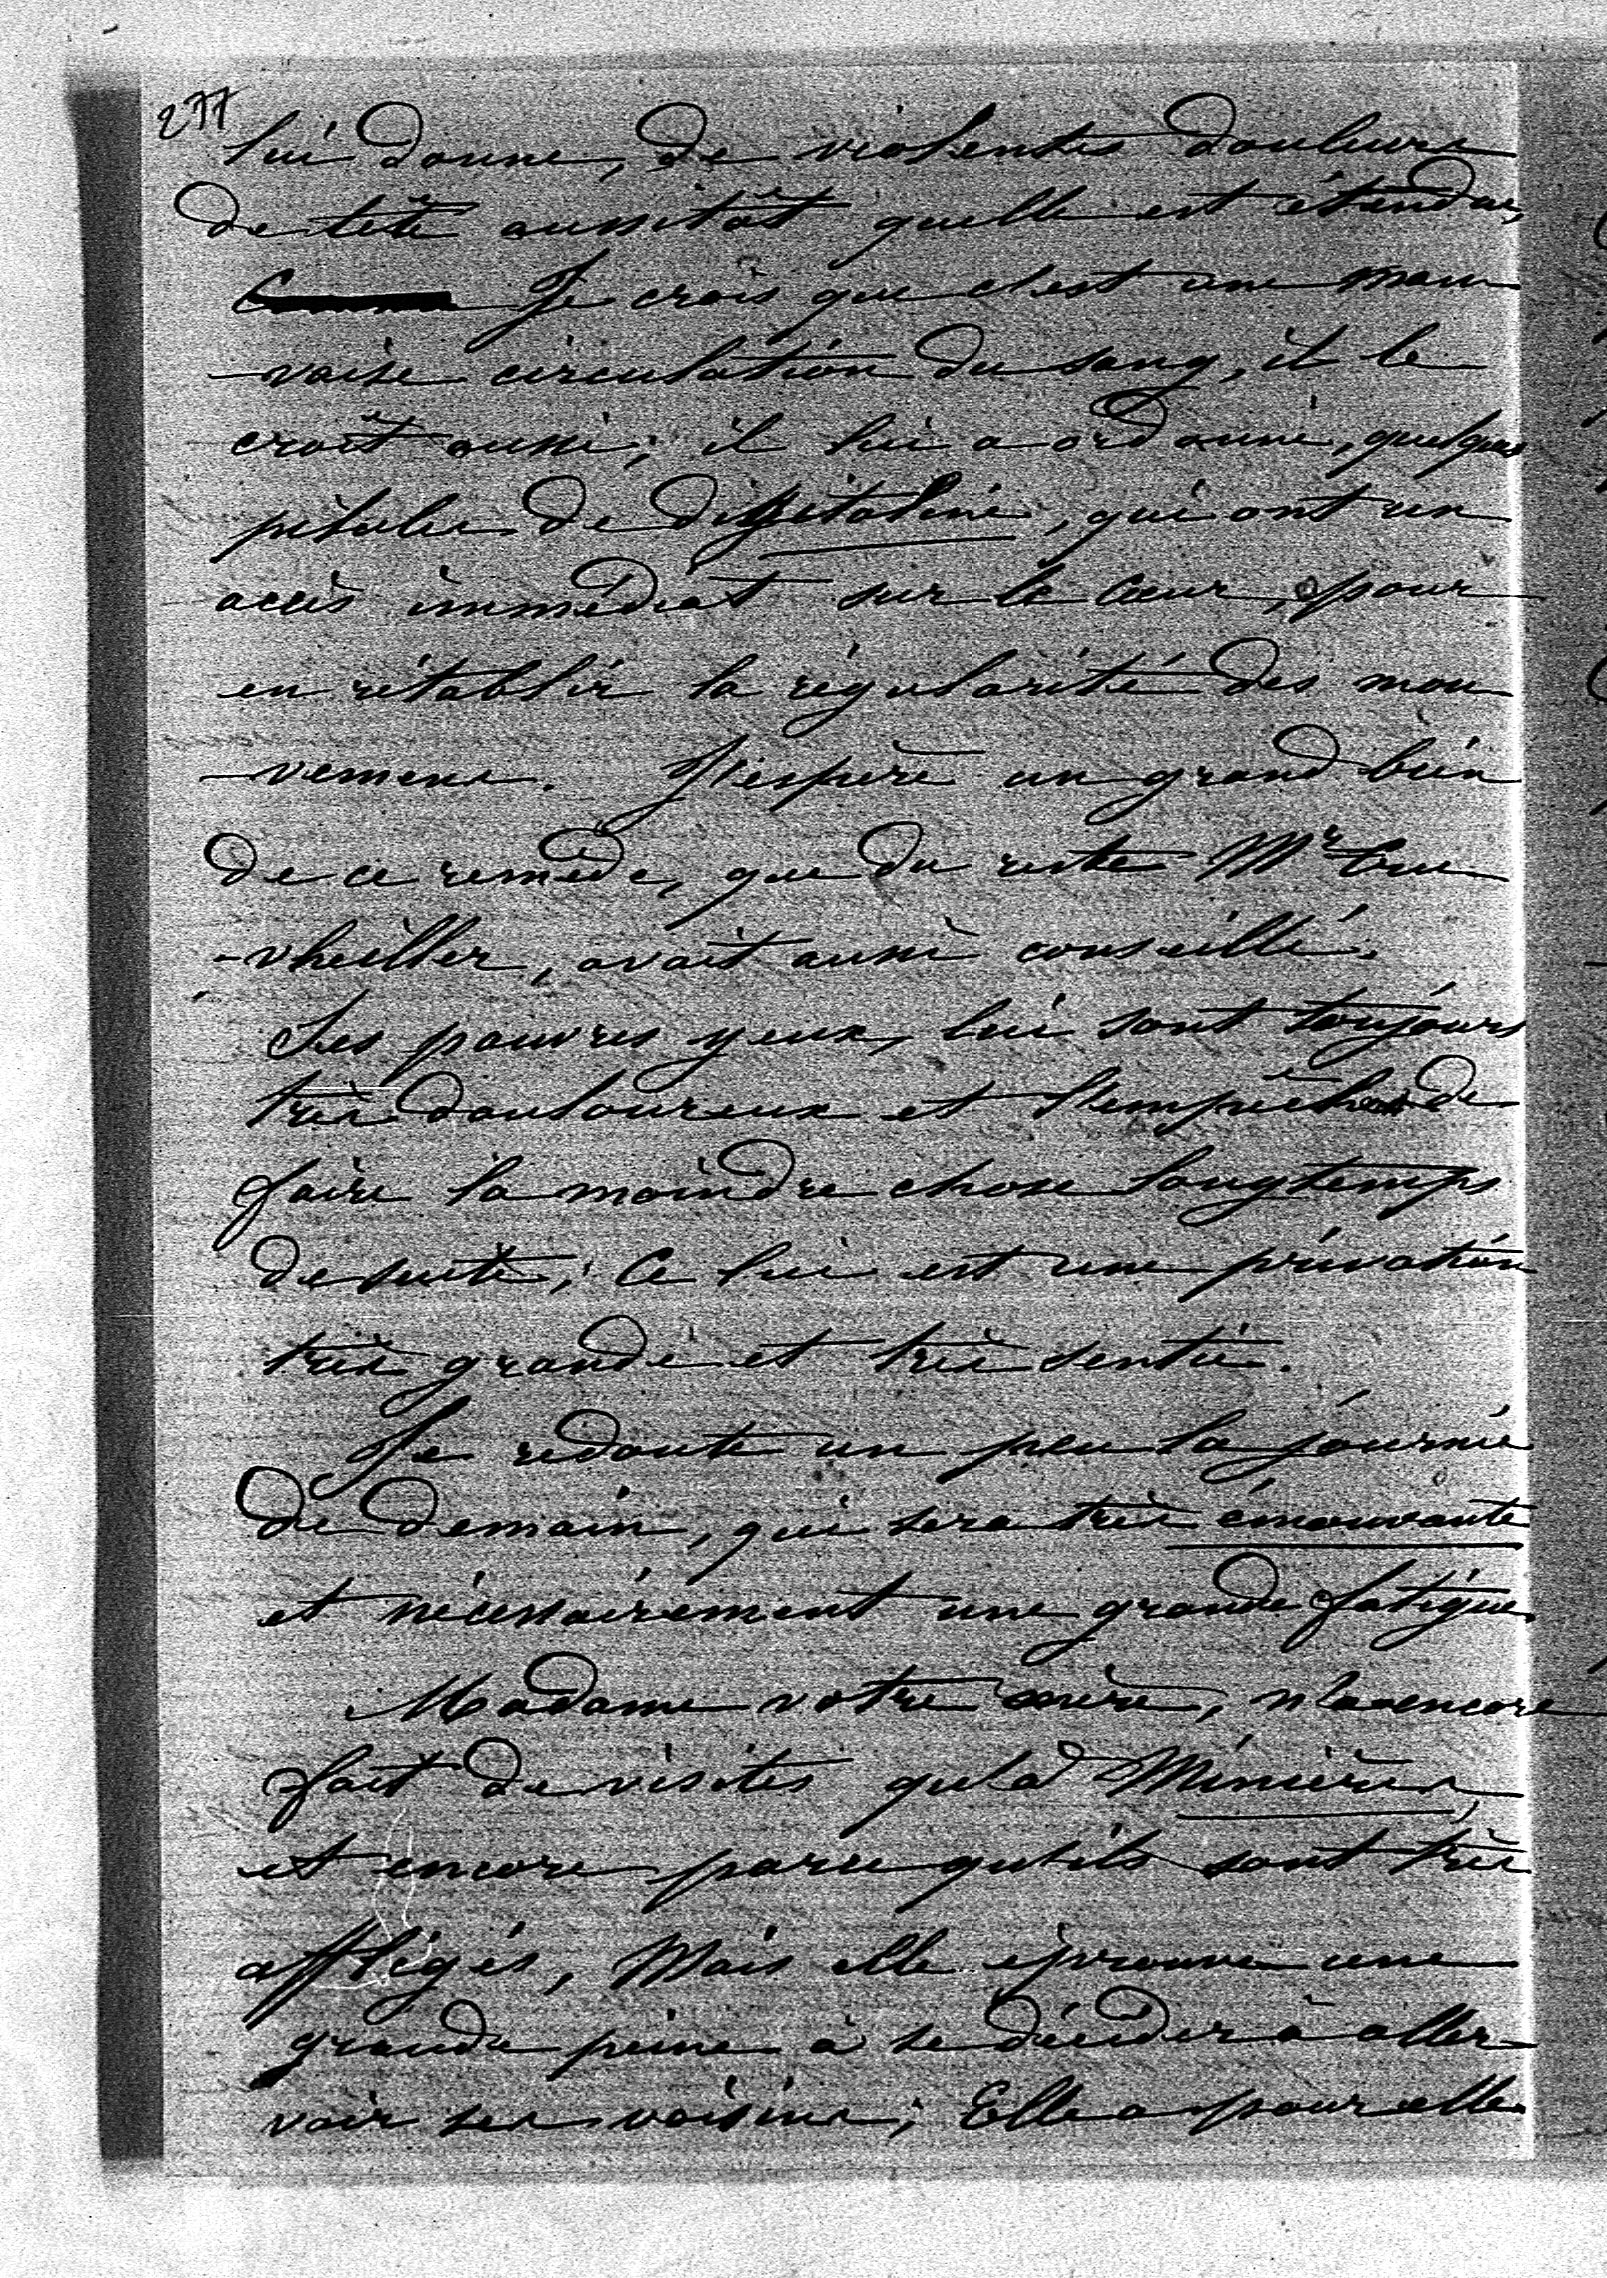 277
lui donne, de violentes douleurs
de tête aussitôt qu'elle est étendue,
Je crois que c'est une mau
-vaise circulation du sang, il le
croit aussi; il lui a ordonné, quelques
pilules de digitaline, qui ont un
accès immédiat sur le cœur, pour
en rétablir la régularité des mou
-vemens. J'espère un grand bien
de ce remède, que du reste Mr Cru
-vheiller, avait aussi conseillé.
Ses pauvres yeux, lui sont toujours
très douloureux et l'empêchent de
faire la moindre chose longtemps
de suite; Ce lui est une privation
très grande et très sentie.
Je redoute un peu la journée
de demain, qui sera très émouvante
et nécessairement une grande fatigue.
Madame votre mère, n'a encore
fait de visites qu'à Minières,
et encore parce qu'ils sont très
affligés, Mais elle éprouve une
grande peine à se décider à aller
voir ses voisins; Elle a pour elle